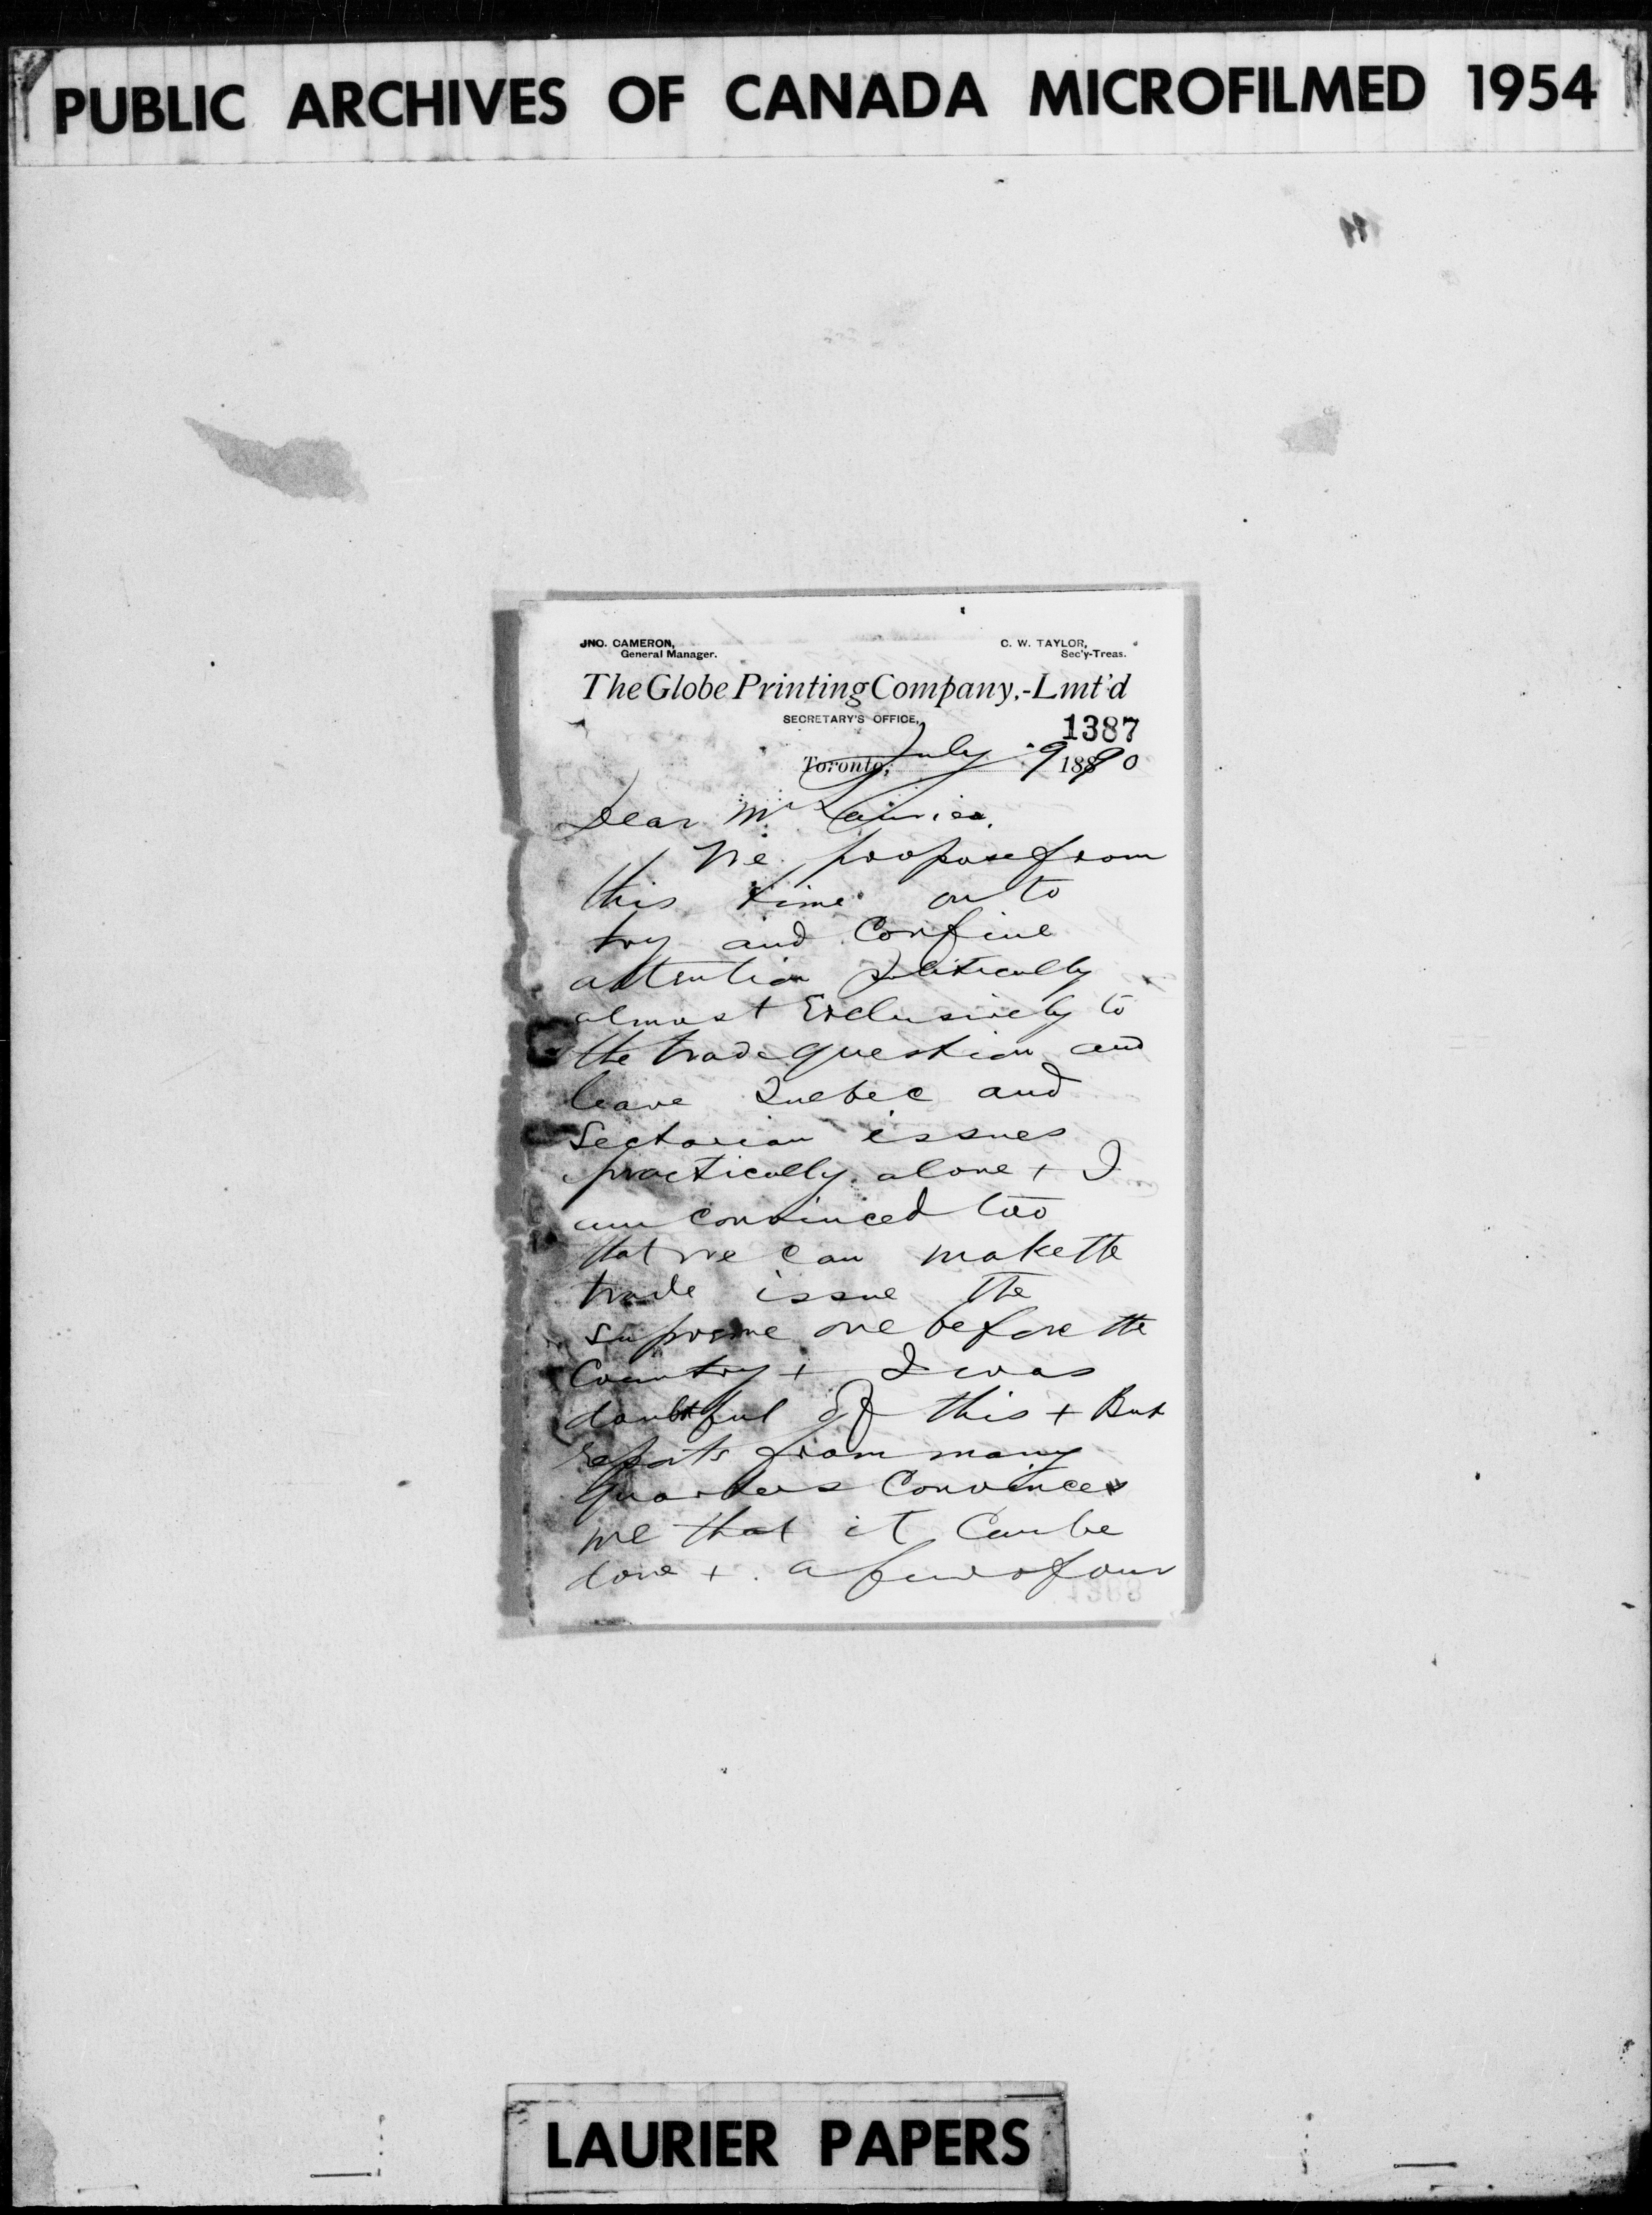 PUBLIC ARCHIVES OF CANADA MICROFILMED 1954
JNO. CAMERON,
General Manager.
C. W. TAYLOR,
Sec'y-Treas.
The Globe Printing Company,-Lmt'd
SECRETARY'S OFFICE,
1387
Toronto, July 9 1890
Dear Mr Laurier.
We propose from
this time on to
try and Confine
attention politically
almost Exclusively to
the trade question and
leave Quebec and
Sectarian issues
practically alone + I
am convinced too
that we can make the
trade issue the
supreme one before the
Country + I was
doubtful of this + But
reports from many
quarters Convinces
me that it Can be
done + a few of our
LAURIER PAPERS